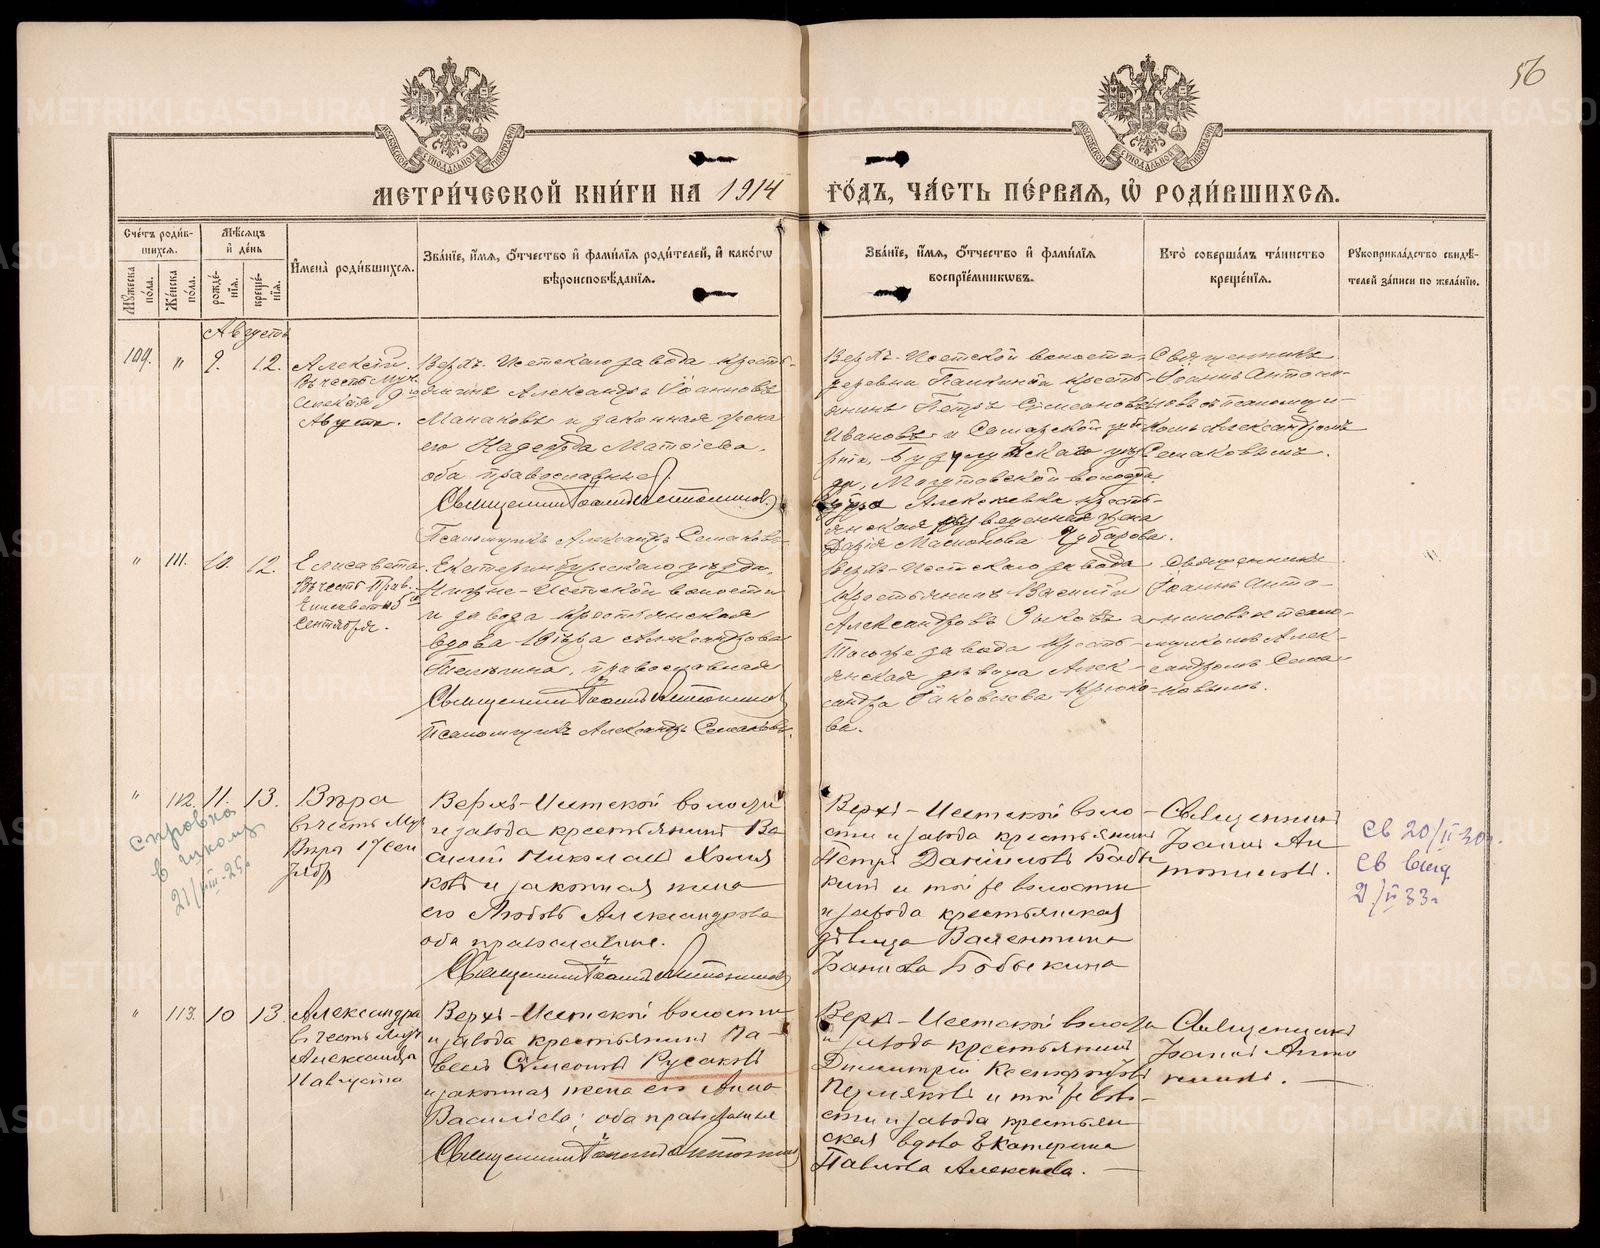 56
МОСКОВСКОЙ СѴНОДАЛЬНОЙ ТИПОГРАФІИ
МОСКОВСКОЙ СѴНОДАЛЬНОЙ ТИПОГРАФІИ
МЕТРИ́ЧЕСКОЙ КНИ́ГИ НА 1914 ГО́ДЪ, ЧА́СТЬ ПЕ́РВАЯ, Ѡ РОДИ́ВШИХСЯ.
Сче́тъ роди́в-
шихся.
Мѣ́сяцъ
и҆ де́нь
Мꙋ́жеска по́ла.
Же́нска по́ла.
рожде́-
нїя.
креще́-
нїя.
И҆мена̀ роди́вшихся.
Зва́нїе, и҆́мя, ѻ҆́тчество и҆ фами́лїя роди́телей, и҆ како́гѡ
вѣроисповѣ́данїя.
Зва́нїе, и҆́мя, ѻ҆́тчество и҆ фами́лїя
воспрїе́мникѡвъ.
Кто̀ соверша́лъ та́инство
креще́нїя.
Рꙋкоприкла́дство свидѣ́-
телей за́писи по жела́нїю.
Августъ
109. " 9. 12.
Алексѣй.
Въ честь Муч.
Алексія 9го
Августа.
Верхъ-Исетскаго завода кресть-
янинъ Александръ Іоанновъ
Манаковъ и законная жена
его Надежда Матѳіева,
оба православные.
Священникъ Іоаннъ Антониновъ
Псаломщикъ Александръ Семаковъ
Верхъ-Исетской волости,
деревни Палкиной кресть-
янинъ Петръ Симеоновъ
Ивановъ и Самарской губ-
рніи, Бузулукскаго уѣз
да, Могутовской волости,
Алексѣевка кресть-
янская разведенная жена
Дарія Чубарова.
Священникъ
Іоаннъ Антони-
новъ съ псаломщи-
комъ Александромъ
Семаковымъ.
" 111. 10. 12.
Елисавета.
Въ честь Прав.
Елисаветы 5го
Сентября.
Екатеринбургскаго уѣзда,
Нижне-Исетской волости
и завода крестьянская
вдова Вѣра Александрова
православная
Священникъ Іоаннъ Антониновъ
Псаломщикъ Александръ Семаковъ.
Верхъ-Исетскаго завода
крестьянинъ Василій
Александровъ Зыковъ и
того же завода кресть-
янская дѣвица Алек-
сандра Іаковлева Крюко-
ва.
Священникъ
Іоаннъ Анто-
ниновъ съ псало-
мщикомъ Алек-
сандромъ Сема-
ковымъ.
" 112. 11. 13.
справка
в школу
21/VIII-25г.
Вѣра
въ честь Муч
Вѣры 17 Сен
тября
Верхъ-Исетской волости
и завода крестьянинъ Ва
силій Николаевъ
и законная жена
его Любовь Александрова
оба православные.
Священникъ Іоаннъ Антониновъ
Верхъ-Исетской воло-
сти и завода крестьянинъ
Петръ Даніиловъ Бабы
кинъ и той же волости
и завода крестьянская
дѣвица Валентина
Іоаннова Бобыкина
Священникъ
Іоаннъ Ан
тониновъ.
св 20/II-30г.
св выд
21/II 33г
" 113. 10 13.
Александра
въ честь Муч
Александра
11 августа
Верхъ-Исетской волости
и завода крестьянинъ Па-
велъ Симеоновъ Русаковъ
и законная жена его Анна
Василіева; оба православные
Священникъ Іоаннъ Антониновъ
Верхъ-Исетской волости
и завода крестьянинъ
Димитрій Ксенофонтовъ
Пермяковъ и той же воло-
сти и завода крестьян
ская вдова Екатерина
Павлова Алексѣева.
Священникъ
Іоаннъ Анто
ниновъ.